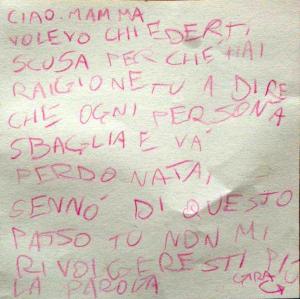 CIAO. MAMMA
VOLEVO CHIEDERTI
SCUSA PERCHÉ HAI
RAIGIONE TU A DIRE
CHE OGNI PERSONA
SBAGLIA E VA'
PERDONATA,
SENNÓ DI QUESTO
PATSO TU NON MI
RIVOLGERESTI PIÙ
LA PAROLA
CARA